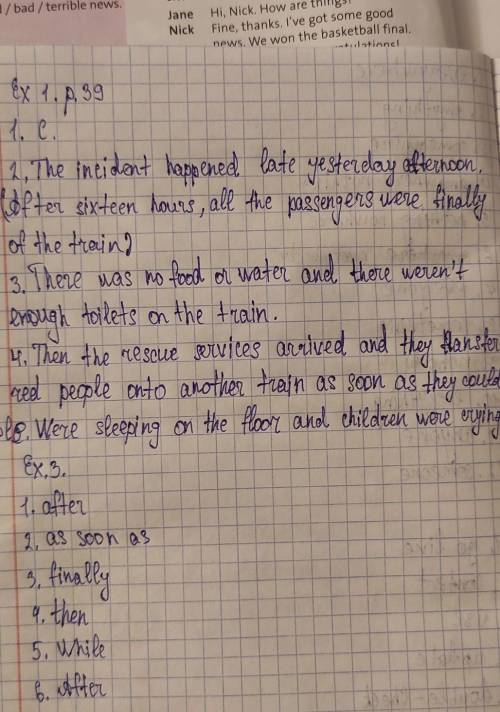 l / bad / terrible news.
Jane Hi, Nick. How are things?
Nick Fine, thanks. I've got some good
news. We won the basketball final.
Ex 1. p.39
1. C.
2. The incident happened late yesterday afternoon.
(After sixteen hours, all the passengers were finally
of the train)
3. There was no food or water and there weren't
enough toilets on the train.
4. Then the rescue services arrived and they transfer
red people onto another train as soon as they could
Were sleeping on the floor and children were crying
Ex.3.
1. after
2. as soon as
3. finally
4. then
5. While
6. After